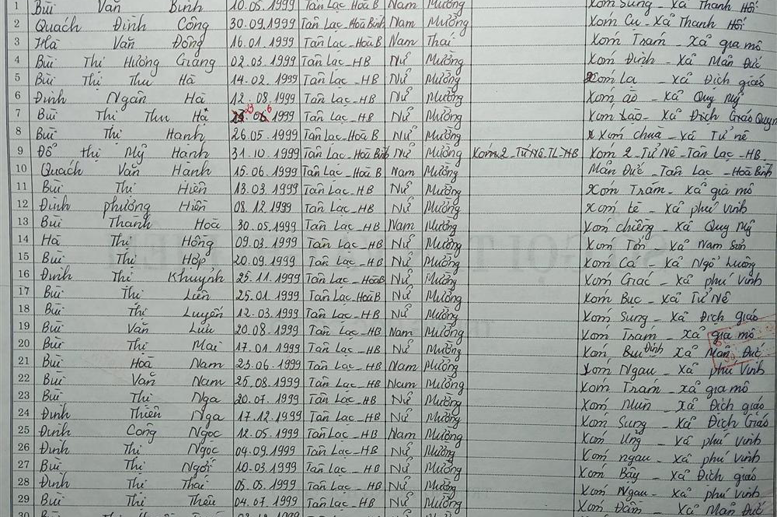 1 Bùi Văn Bình 10.05.1999 Tân Lạc Hoà B Nam Mường Xóm Sung - Xã Thanh Hối
2 Quách Đình Công 30.09.1999 Tân Lạc Hoà Bình Nam Mường Xóm Cu - Xã Thanh Hối
3 Hà Văn Đồng 16.01.1999 Tân Lạc - Hoà B Nam Thái Xóm Trám - Xã gia mô
4 Bùi Thị Hương Giang 02.03.1999 Tân Lạc - HB Nữ Mường Xóm Định - Xã Mãn Đức
5 Bùi Thị Thu Hà 14.02.1999 Tân Lạc - HB Nữ Mường Xóm La - Xã Địch giáo
6 Đinh Ngân Hà 12.08.1999 Tân Lạc - HB Nữ Mường Xóm ào - Xã Quy Mỹ
7 Bùi Thị Thu Hà 1999 Tân Lạc - HB Nữ Mường Xóm - Xã Địch Giáo
8 Bùi Thị Hạnh 26.05.1999 Tân Lạc - Hoà B Nữ Mường Xóm chuà - Xã Tử nê
9 Đỗ thị Mỹ Hạnh 31.10.1999 Tân Lạc - Hoà Bình Nữ Mường Xóm 2 - Tử Nê - TL - HB Xóm 2 - Tử Nê - Tân Lạc - HB
10 Quách Văn Hạnh 15.06.1999 Tân Lạc - Hoà B Nam Mường Mãn Đức - Tân Lạc - Hoà Bình
11 Bùi Thị Hiền 13.03.1999 Tân Lạc - HB Nữ Mường Xóm Trám - Xã gia mô
12 Đinh phương Hiền 08.12.1999 Tân Lạc - HB Nữ Mường Xóm Lẽ - Xã phú vinh
13 Bùi Thanh Hoà 30.05.1999 Tân Lạc - HB Nam Mường Xóm chiềng - Xã Quy Mỹ
14 Hà Thị Hồng 09.03.1999 Tân Lạc - HB Nữ Mường Xóm Tớn - Xã Nam Sơn
15 Bùi Thị Hợp 20.09.1999 Tân Lạc - HB Nữ Mường Xóm Cá - Xã Ngổ Luông
16 Đinh Thị Khuynh 25.11.1999 Tân Lạc - Hoà B Nữ Mường Xóm Giác - Xã phú vinh
17 Bùi Thị Liên 25.01.1999 Tân Lạc - Hoà B Nữ Mường Xóm Bục - Xã Tử Nê
18 Bùi Thị Luyến 12.03.1999 Tân Lạc - HB Nữ Mường Xóm Sung - Xã Địch giáo
19 Bùi Văn Lưu 20.08.1999 Tân Lạc - HB Nam Mường Xóm Trám - Xã gia mô
20 Bùi Thị Mai 17.01.1999 Tân Lạc - HB Nữ Mường Xóm Bui Định Xã Mãn Đức
21 Bùi Hoà Nam 23.06.1999 Tân Lạc - HB Nam Mường Xóm Ngau - Xã Phú Vinh
22 Bùi Văn Nam 25.08.1999 Tân Lạc - HB Nam Mường Xóm Trám - Xã gia mô
23 Bùi Thị Nga 20.07.1999 Tân Lạc - HB Nữ Mường Xóm Mùn - Xã Địch giáo
24 Đinh Thiên Nga 17.12.1999 Tân Lạc - HB Nữ Mường Xóm Sung - Xã Địch Giáo
25 Đinh Công Ngọc 12.05.1999 Tân Lạc - HB Nam Mường Xóm Ửng - Xã phú vinh
26 Đinh Thị Ngọc 04.09.1999 Tân Lạc - HB Nữ Mường Xóm ngau - Xã phú vinh
27 Bùi Thị 10.03.1999 Tân Lạc - HB Nữ Mường Xóm Bậy - Xã Địch giáo
28 Đinh Thị Thái 05.05.1999 Tân Lạc - HB Nữ Mường Xóm Ngau - Xã phú vinh
29 Bùi Thị Thêu 04.07.1999 Tân Lạc - HB Nữ Mường Xóm Đầm - Xã Mãn Đức